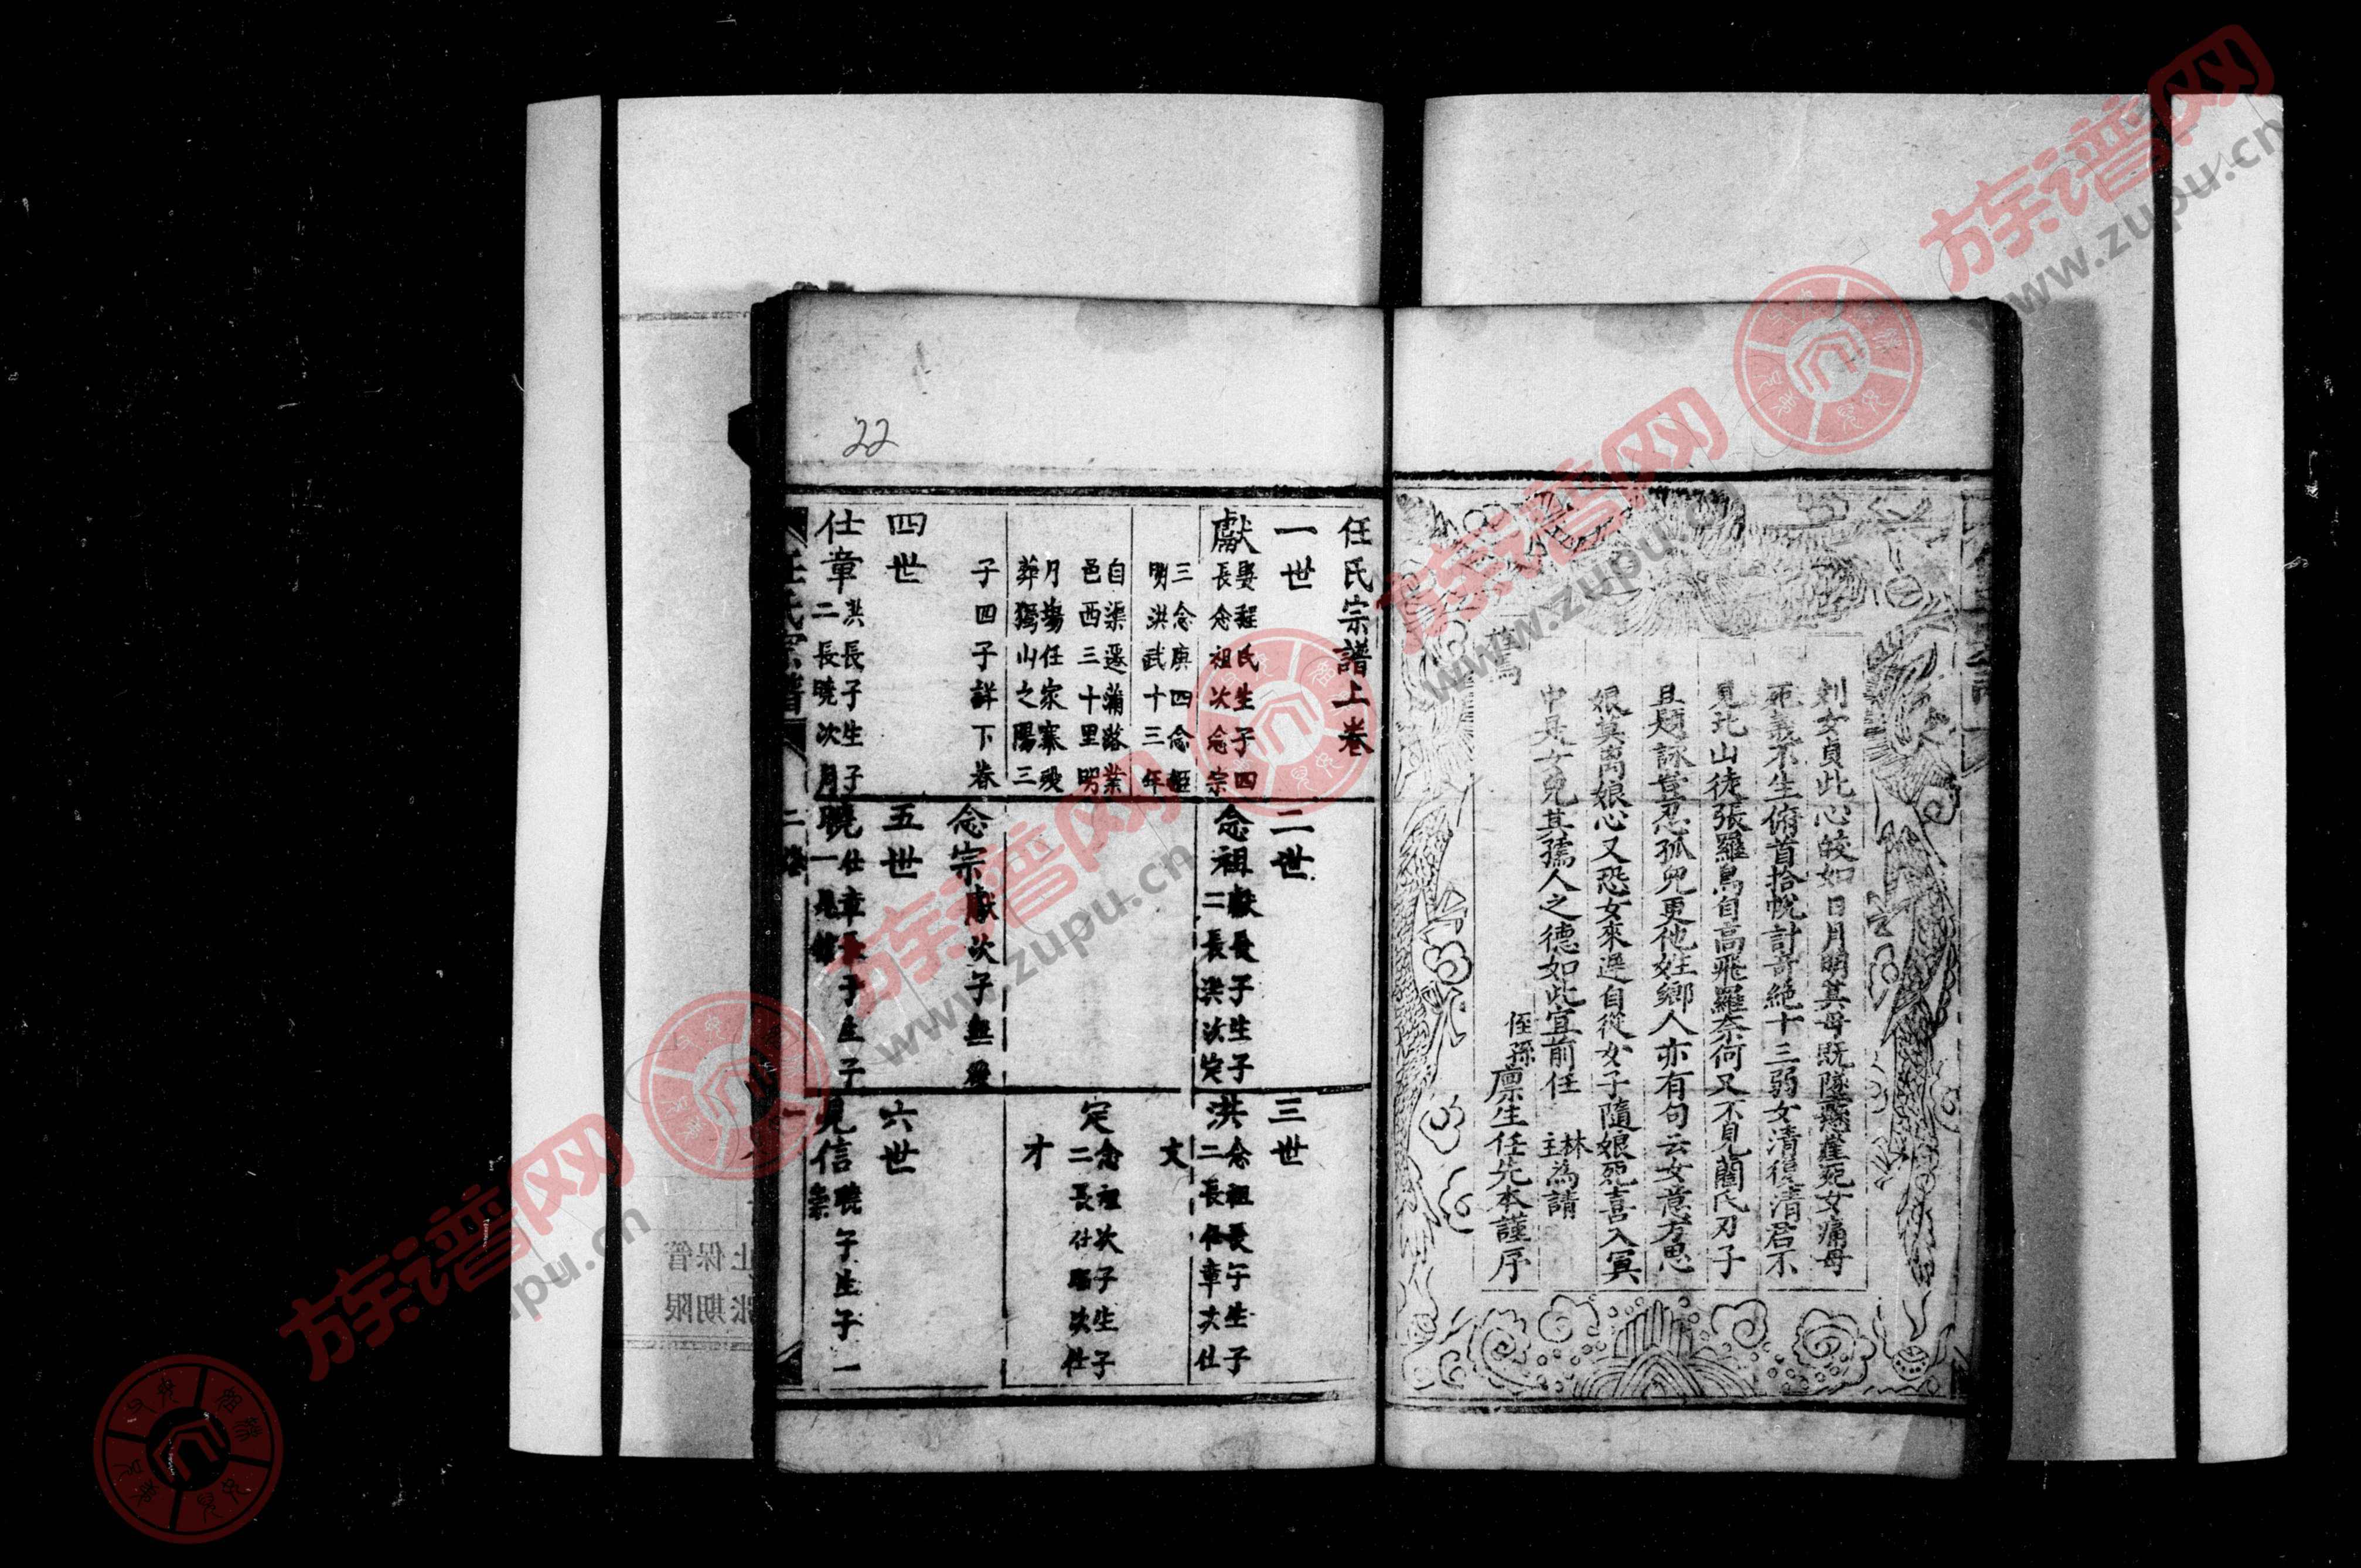 刘女貞此心皎如日月明其母既墜懸崖死女痛母
死義不生俯首拾帨計奇絶十三弱女清後清君不
見北山徒張羅鳥自高飛羅奈何又不見藺氏刃子
且題詠昔忍孤兒更他姓鄉人亦有句云女意方思
娘莫离娘心又恐女來遲自從女子隨娘死喜入冥
中是女兒其孺人之德如此宜前任 林 主為請
焉
侄孫廪生任先本謹序
任氏宗譜上卷
一世
獻 娶程氏生子四
長念祖次念宗
三念庚四念
明洪武十三年
自渠遷蒲路業
邑西三十里明
月塲任家寨歿
葬獨山之陽三
子四子詳下卷
二世
念祖 獻長子生子
二長洪次定
念宗 獻次子無後
三世
洪 念祖長子生子
二長仕章次仕
文
定 念祖次子生子
二長仕 次仕
才
四世
仕章 洪長子生子
二長曉次月
五世
曉 仕章長子生子
一見信
六世
見信 曉子生子一
任氏宗譜
22
上保管
期限
族谱网
www.zupu.cn
族谱网
www.zupu.cn
族谱网
www.zupu.cn
族谱网
zupu.cn